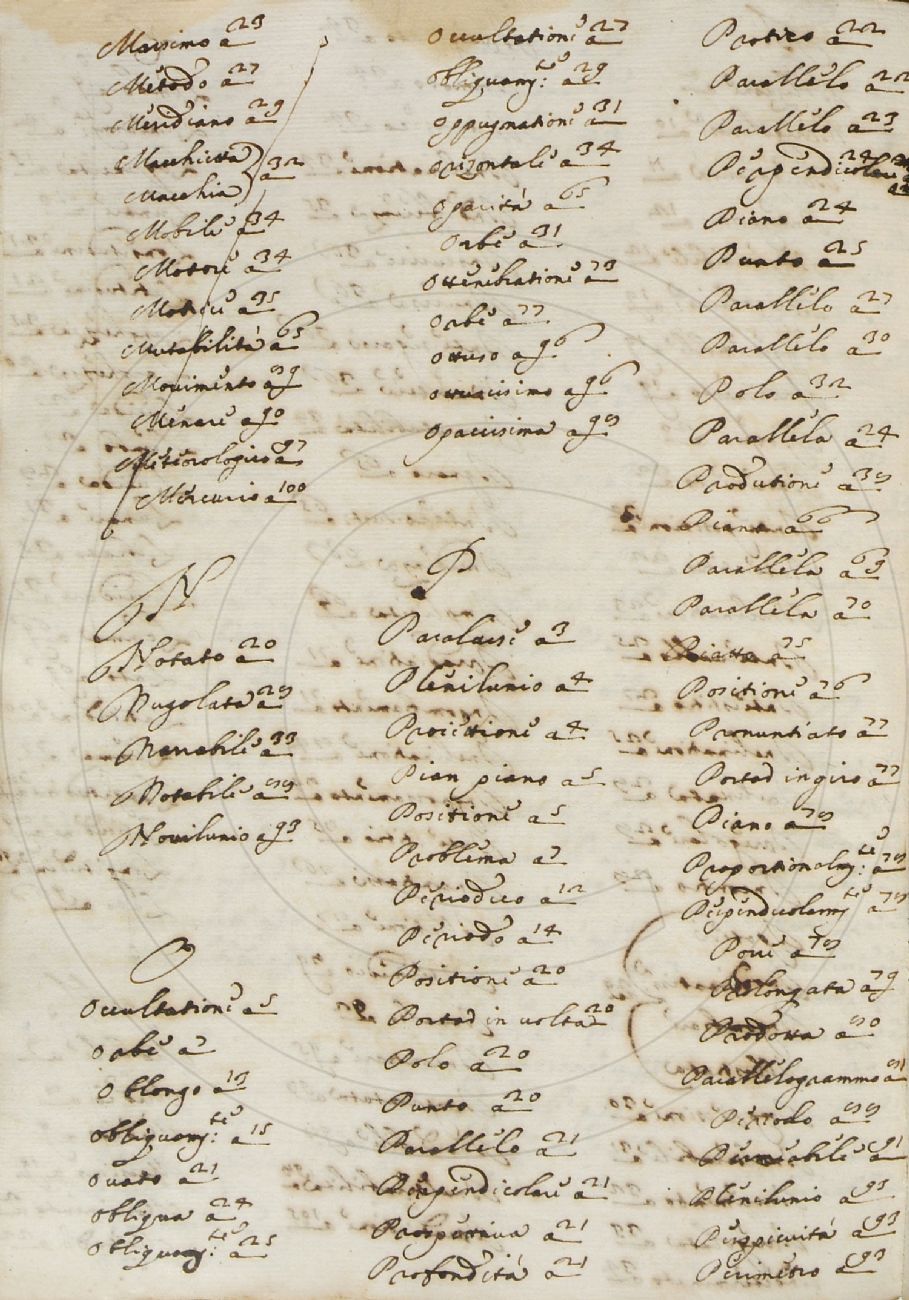 Massimo a 23
Metodo a 27
Meridiano a 29
Macchietta
Macchia a 32
Mobile a 34
Motore a 34
Motrice a 35
Mutabilità a 65
Movimento a 89
Menare a 90
Meteorologico a 97
Mercurio a 100
N
Notato a 20
Nugolata a 28
Notabile a 88
Novilunio a 93
O
Occultatione a 5
Orbe a 7
Oblongo a 13
Obliquamte: a 15
Ovato a 21
Obliqua a 24
Obliquamte: a 25
Occultatione a 27
Obliquamte: a 29
Oppugnatione a 31
Orizontale a 34
Opacità a 65
Orbe a 31
Ottenebratione a 73
Orbe a 77
Ottuso a 96
Opacissima a 98
P
Paralasse a 3
Plenilunio a 4
Proiettione a 4
Pian piano a 5
Positione a 5
Problema a 7
Periodico a 12
Periodo a 14
Positione a 20
Portad in volta 20
Polo a 20
Punto a 20
Parallelo a 21
Perpendicolare a 21
Prospettiva a 21
Profondità a 21
Parallelo a 22
Parallelo a 23
Perpendicolare 24
Piano a 24
Punto a 25
Parallelo a 27
Parallelo a 30
Polo a 32
Parallela a 24
Produtione a 38
Piano a 66
Parallela a 69
Parallela a 70
Positione a 76
Pronuntiato a 77
Portad in giro a 77
Piano a 78
Proportionalmte: a 78
Perpendicolarmte a 78
Prolongata a 79
Prodotta a 80
Parallelogrammo a 81
Plenilunio a 93
Perspicuità a 93
Perimetro a 93